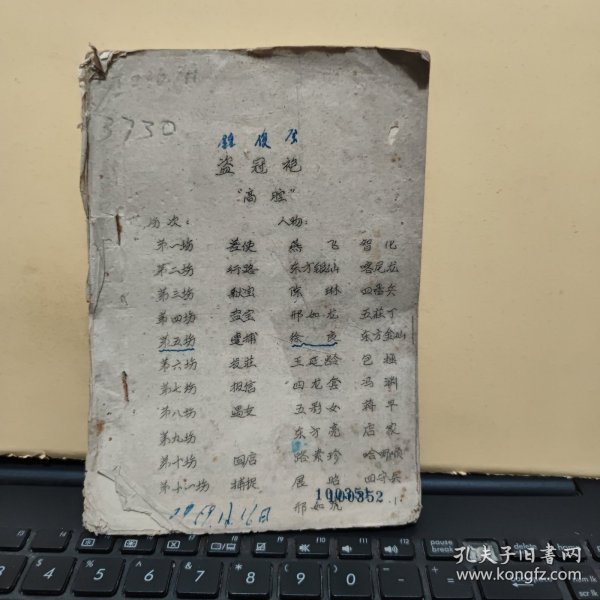 3730
盗冠袍
"高腔"
场次： 人物：
第一场 差使 燕飞 智化
第二场 行路 东方银仙
第三场 献宝 陈琳 四番兵
第四场 盗宝 邢如龙 五荘丁
第五场 逮捕 徐良 东方金仙
第六场 投荘 王廷龄 包拯
第七场 报信 四龙套 冯渊
第八场 遇女 五彩女 蒋平
第九场 东方亮 店家
第十场 回店 路素珍
第十一场 捕捉 展昭 四守兵
邢如虎
pause
break
孔夫子旧书网
www.kongfz.com